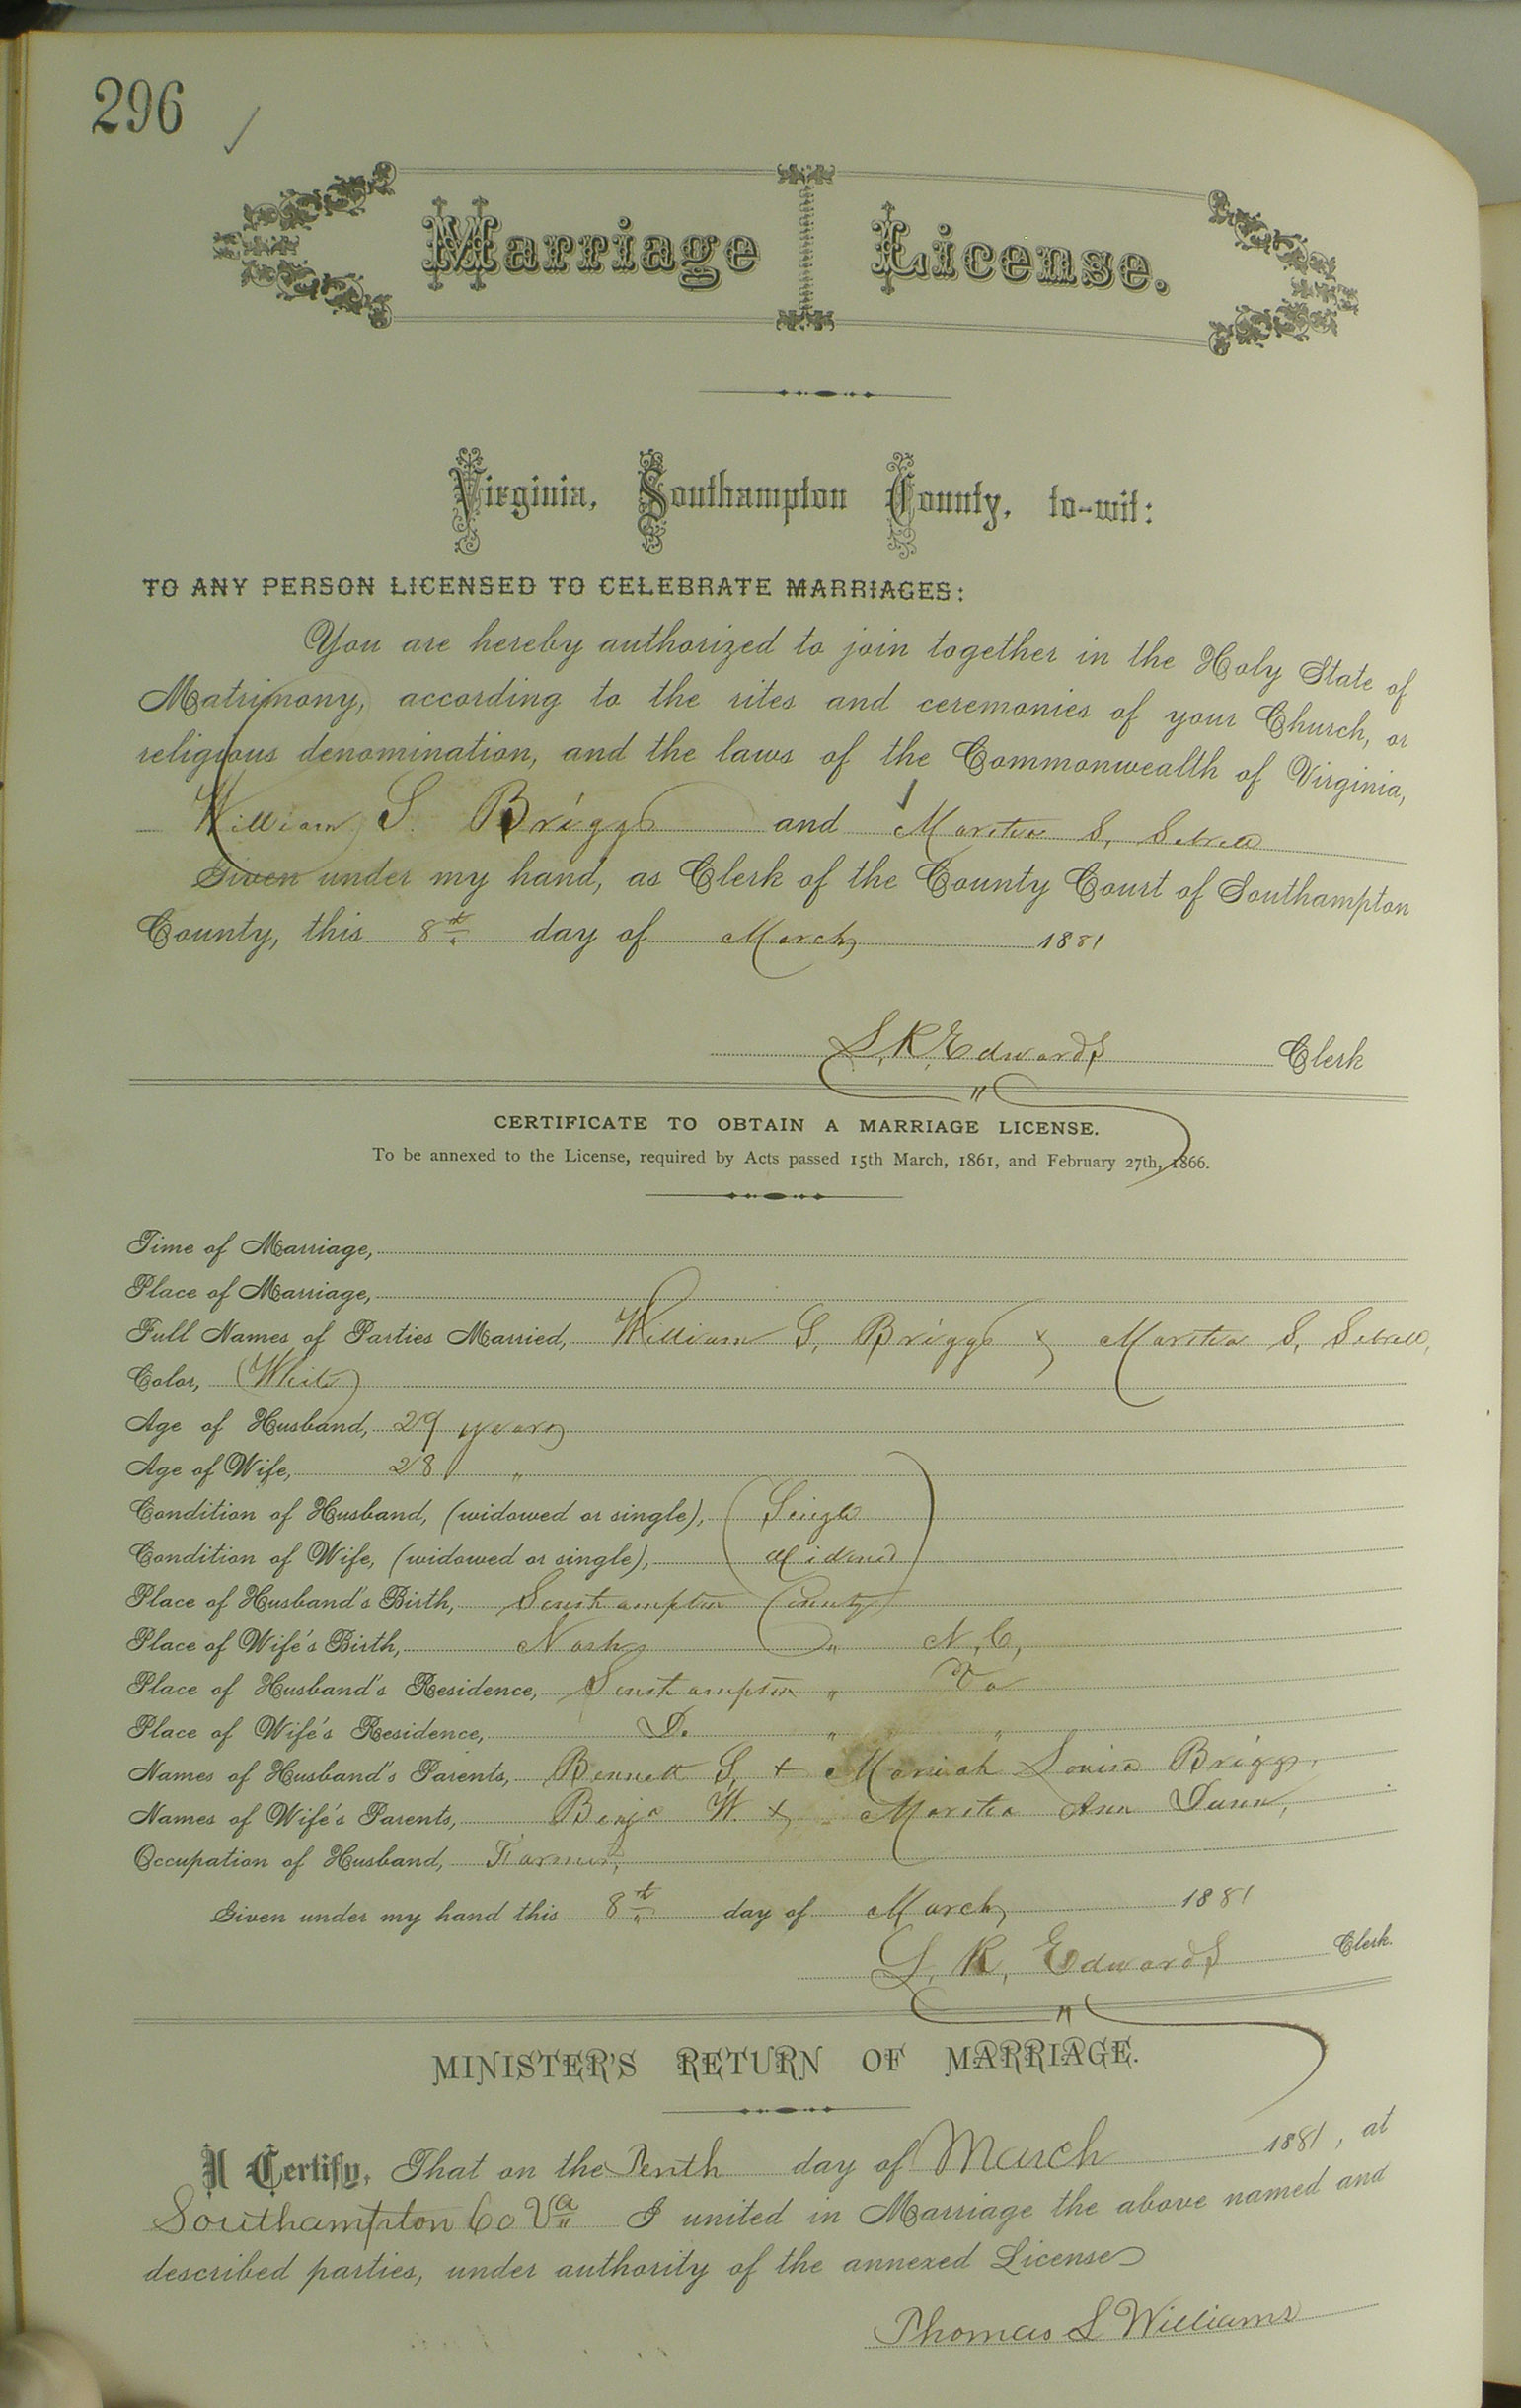 296
Marriage License.
Virginia, Southampton County, to-wit:
TO ANY PERSON LICENSED TO CELEBRATE MARRIAGES:
You are hereby authorized to join together in the Holy State of
Matrimony, according to the rites and ceremonies of your Church, or
religious denomination, and the laws of the Commonwealth of Virginia,
William S. Briggs and Martha S. Sebrell
Given under my hand, as Clerk of the County Court of Southampton
County, this 8th day of March 1881
L. R. Edwards Clerk
CERTIFICATE TO OBTAIN A MARRIAGE LICENSE.
To be annexed to the License, required by Acts passed 15th March, 1861, and February 27th, 1866.
Time of Marriage,
Place of Marriage,
Full Names of Parties Married, William S. Briggs & Martha S. Sebrell,
Color, (White)
Age of Husband, 29 years
Age of Wife, 28 "
Condition of Husband, (widowed or single), Single
Condition of Wife, (widowed or single), Widowed
Place of Husband's Birth, Southampton County
Place of Wife's Birth, Nash " N.C.,
Place of Husband's Residence, Southampton " Va
Place of Wife's Residence, Do " "
Names of Husband's Parents, Bennett S. & Mariah Louisa Briggs,
Names of Wife's Parents, Benja W. & Martha Ann Dunn,
Occupation of Husband, Farmer,
Given under my hand this 8th day of March 1881
L. R. Edwards Clerk.
MINISTER'S RETURN OF MARRIAGE.
I Certify, That on the Tenth day of March 1881, at
Southampton Co Va I united in Marriage the above named and
described parties, under authority of the annexed License
Thomas L Williams